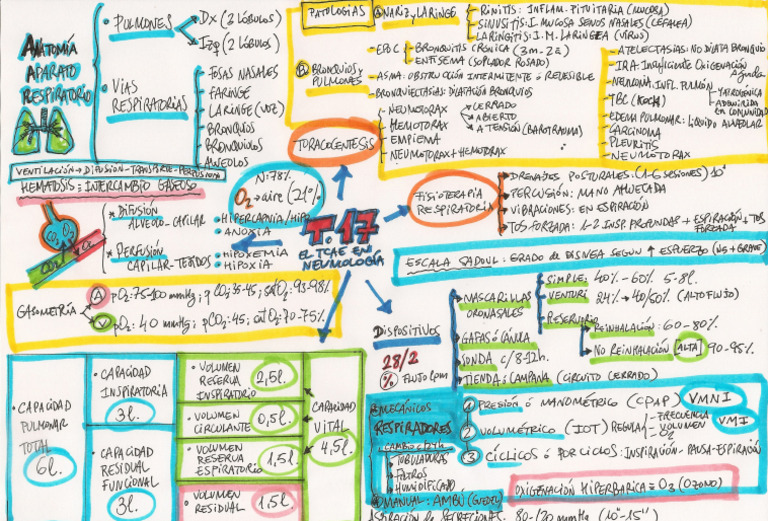 ANATOMÍA
APARATO
RESPIRATORIO
• PULMONES
Dx (2 LÓBULOS)
IZQ (2 LÓBULOS)
• VÍAS
RESPIRATORIAS
- FOSAS NASALES
- FARINGE
- LARINGE (VOZ)
- BRONQUIOS
- BRONQUIOLOS
- ALVEOLOS
VENTILACIÓN → DIFUSIÓN - TRANSPORTE - PERFUSIÓN
HEMATOSIS = INTERCAMBIO GASEOSO
CO2 O2
CO2 O2
* DIFUSIÓN
ALVEOLO - CAPILAR
* PERFUSIÓN
CAPILAR - TEJIDOS
N: 78%
O2 → aire (21%)
• HIPERCAPNIA/HIPO
• ANOXIA
• HIPOXEMIA
• HIPOXIA
GASOMETRÍA
A pO2: 75-100 mmHg; pCO2: 35-45; satO2: 93-98%
V pO2: 40 mmHg; pCO2: 45; satO2: 70-75%
PATOLOGÍAS
A NARIZ y LARINGE
- RINITIS: INFLAM. PITUITARIA (MUCOSA)
- SINUSITIS: I. MUCOSA SENOS NASALES (CEFALEA)
- LARINGITIS: I. M. LARINGEA (VIRUS)
B BRONQUIOS y
PULMONES
- EPOC
- BRONQUITIS CRÓNICA (3m-2a)
- ENFISEMA (SOPLADOR ROSADO)
- ASMA: OBSTRUCCIÓN INTERMITENTE ó REVERSIBLE
- BRONQUIECTASIAS: DILATACIÓN BRONQUIOS
- ATELECTASIAS: NO DILATA BRONQUIO
- IRA: Insuficiente OXIGENACIÓN
Aguda
- NEUMONÍA: INFL. PULMÓN
- YATROGÉNICA
ADQUIRIDA
EN COMUNIDAD
- TBC (KOCH)
- EDEMA PULMONAR: LÍQUIDO ALVEOLAR
- CARCINOMA
- PLEURITIS
- NEUMOTORAX
TORACOCENTESIS
- NEUMOTORAX
CERRADO
ABIERTO
A TENSIÓN (BAROTRAUMA)
- HEMOTORAX
- EMPIEMA
- NEUMOTORAX + HEMOTORAX
T.17
EL TCAE EN
NEUMOLOGÍA
FISIOTERAPIA
RESPIRATORIA
DRENAJES POSTURALES (1-6 SESIONES) 10'
PERCUSIÓN: MANO AHUECADA
VIBRACIONES: EN ESPIRACIÓN
TOS FORZADA: 1-2 INSP. PROFUNDAS + ESPIRACIÓN + TOS
FORZADA
ESCALA SADOUL: GRADO DE DISNEA SEGÚN ↑ ESFUERZO (N5 + GRAVE)
DISPOSITIVOS
28/2
% FLUJO Lpm
• MASCARILLAS
ORONASALES
- SIMPLE: 40% - 60% 5-8l.
- VENTURI 24% → 40/50% (ALTO FLUJO)
- RESERVORIO
REINHALACIÓN: 60-80%
NO REINHALACIÓN [ALTA] 90-95%
• GAFAS ó CÁNULA
• SONDA c/8-12h.
• TIENDA ó CAMPANA (CIRCUITO CERRADO)
MECÁNICOS
RESPIRADORES
CAMBIO c/24h
TUBULADURAS
FILTROS
HUMIDIFICADO
1 PRESIÓN ó MANOMÉTRICO (CPAP) VMNI
2 VOLUMÉTRICO (IOT) REGULA
- FRECUENCIA
- VOLUMEN
- O2
VMI
3 CÍCLICOS ó POR CICLOS: INSPIRACIÓN - PAUSA - ESPIRACIÓN
OXIGENACIÓN HIPERBARICA = O3 (OZONO)
MANUAL: AMBÚ (GUEDEL)
DE SECRECIONES: 80-120 mmHg (10"-15")
• CAPACIDAD
PULMONAR
TOTAL
6l.
• CAPACIDAD
INSPIRATORIA
3l.
• CAPACIDAD
RESIDUAL
FUNCIONAL
3l.
• VOLUMEN
RESERVA
INSPIRATORIO
2,5l.
• VOLUMEN
CIRCULANTE
0,5l.
• VOLUMEN
RESERVA
ESPIRATORIO
1,5l.
• VOLUMEN
RESIDUAL
1,5l.
CAPACIDAD
VITAL
4,5l.